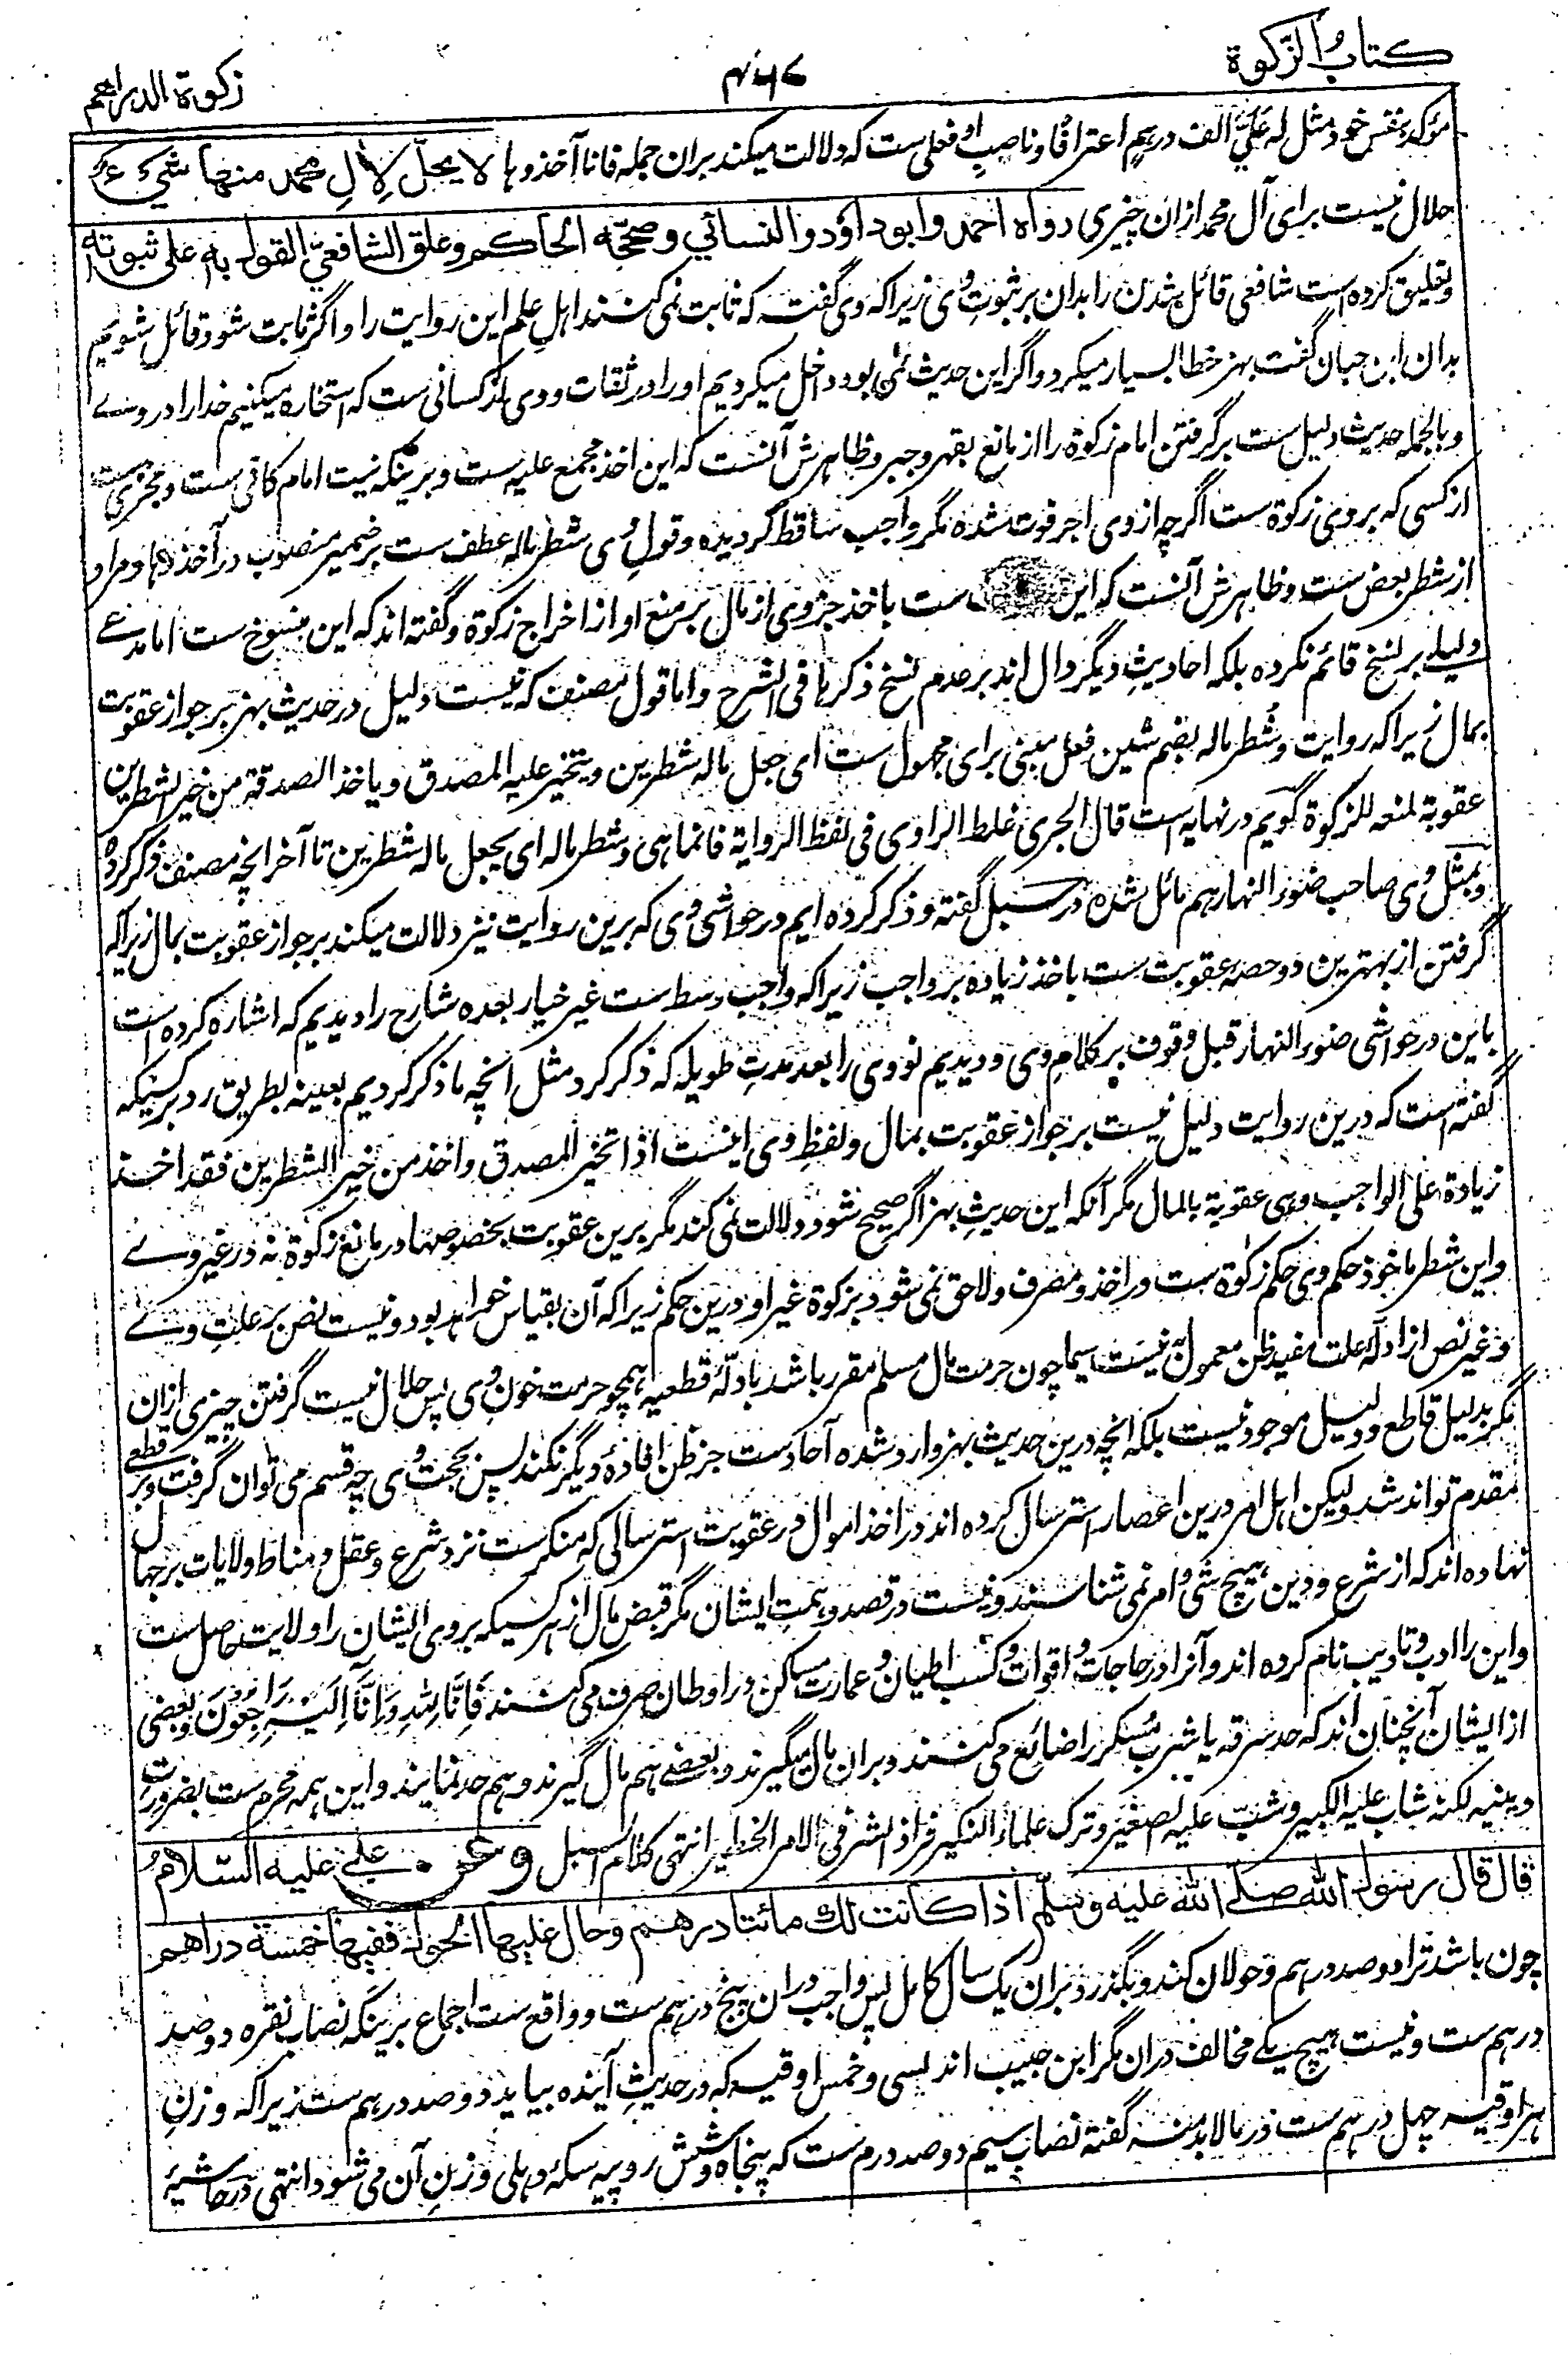 كتاب الزكوة
زكوة الدراهم
مؤكد بنفس خود مثل له علیّ الف درهم اعترافا و ناصب او فعلی ست که دلالت میکند بران جمله فانا آخذوها لا يحل لِاٰلِ محمد منها شيء
حلال نیست برای آل محمد ازان چیزی رواه احمد وابو داؤد والنسائي وصححه الحاكم وعلق الشافعي القول به على ثبوته
و تعلیق کرده است شافعی قائل شدن را بدان بر ثبوت وی زیرا که وی گفته که ثابت نمی کنند اهل علم این روایت را و اگر ثابت شود قائل شویم
بدان ابن حبان گفت بهز خطا بسیار میکرد و اگر این حدیث نمی بود داخل میکردیم او را در ثقات و وی از کسانی ست که استخاره میکنیم خدا را در وے
و بالجمله حدیث دلیل ست بر گرفتن امام زکوة را از مانع بقهر و جبر و ظاهرش آنست که این اخذ مجمع علیه ست و برینکه نیت امام کافی ست و مجزی ست
از کسی که بر وی زکوة ست اگرچه از وی اجر فوت شده مگر واجب ساقط گردیده و قول وی شطر ماله عطف ست بر ضمیر منصوب در آخذوها و مراد
از شطر بعض ست و ظاهرش آنست که این ست باخذ جزوی از مال بر منع او از اخراج زکوة و گفته اند که این منسوخ ست اما مدعے
دلیلے بر نسخ قائم نکرده بلکه احادیث دیگر دال اند بر عدم نسخ ذکرها فی الشرح و اما قول مصنف که نیست دلیل در حدیث بهز بر جواز عقوبت
بمال زیرا که روایت و شُطر ماله بضم شین فعل مبنی برای مجهول ست ای جعل ماله شطرین و یتخیر علیه المصدق و یاخذ الصدقة من خیر الشطرین
عقوبة لمنعه للزکوة گویم در نهایه است قال الحربی غلط الراوی فی لفظ الروایة فانما هی و شطر ماله ای یجعل ماله شطرین تا آخر انچه مصنف ذکر کرده
و بمثل وی صاحب ضوء النهار هم مائل شده در سبل گفته و ذکر کرده ایم در حواشی وی که برین روایت نیز دلالت میکند بر جواز عقوبت بمال زیرا که
گرفتن از بهترین دو حصه عقوبت ست باخذ زیاده بر واجب زیرا که واجب وسط ست غیر خیار بعده شارح را دیدیم که اشاره کرده است
باین در حواشی ضوء النهار قبل وقوف بر کلام وی و دیدیم نووی را بعد مدت طویله که ذکر کرد مثل انچه ما ذکر کردیم بعینه بطریق رد بر کسیکه
گفته است که درین روایت دلیل نیست بر جواز عقوبت بمال و لفظ وی اینست اذا تخیر المصدق و اخذ من خیر الشطرین فقد اخذ
زیادة علی الواجب و هی عقوبة بالمال مگر آنکه این حدیث بهز اگر صحیح شود دلالت نمی کند مگر برین عقوبت بخصوصها در مانع زکوة نه در غیر وے
و این شطر ماخوذ حکم وی حکم زکوة ست در اخذ و مصرف و لاحق نمی شود بزکوة غیر او درین حکم زیرا که آن بقیاس خواهد بود و نیست نص بر علت وے
و غیر نص از ادله علت مفید ظن معمول به نیست سیما چون حرمت مال مسلم مقرر باشد بادلۀ قطعیه همچو حرمت خون وی پس حلال نیست گرفتن چیزی ازان
مگر بدلیل قاطع و دلیل موجود نیست بلکه انچه درین حدیث بهز وارد شده آحاد ست جز ظن افادۀ دیگر نکند پس بحجت وی چه قسم می توان گرفت و بر قطعی
مقدم تواند شد و لیکن اهل امر درین اعصار استرسال کرده اند در اخذ اموال در عقوبت استرسالی که منکر ست نزد شرع و عقل و مناط ولایات بر جهال
نهاده اند که از شرع و دین هیچ شی و امر نمی شناسند و نیست در قصد و همت ایشان مگر قبض مال از هر کسیکه بر وی ایشان را ولایت حاصل ست
و این را ادب و تادیب نام کرده اند و آنرا در حاجات و اقوات و کسب اطیان و عمارت مساکن در اوطان صرف می کنند فَاِنَّا لِلّٰهِ وَاِنَّا اِلَيْهِ رَاجِعُوْنَ و بعضی
از ایشان آنچنان اند که حد سرقه یا شرب مسکر را ضائع می کنند و بران مال میگیرند و بعضے هم مال گیرند و هم حد نمایند و این همه محرم ست بضرورت
دینیه لکنه شاب علیه الکبیر و شبّ علیه الصغیر و ترک علماء النکیر فزاد الشر فی الامر الخطیر انتهی کلام السبل وعن علي عليه السلام
قال قال رسول الله صلى الله عليه وسلم اذا كانت لك مائتا درهم وحال عليها الحول ففيها خمسة دراهم
چون باشد ترا دو صد درهم و حولان کند و بگذرد بران یک سال کامل پس واجب دران پنج درهم ست و واقع ست اجماع برینکه نصاب نقره دو صد
درهم ست و نیست هیچ یکے مخالف دران مگر ابن حبیب اندلسی و خمس اوقیه که در حدیث آینده بیاید دو صد درهم ست زیرا که وزن
هر اوقیه چهل درهم ست در مالابد منه گفته نصاب سیم دو صد درم ست که پنجاه و شش روپیه سکۀ دهلی وزن آن می شود انتهی در حاشیۀ